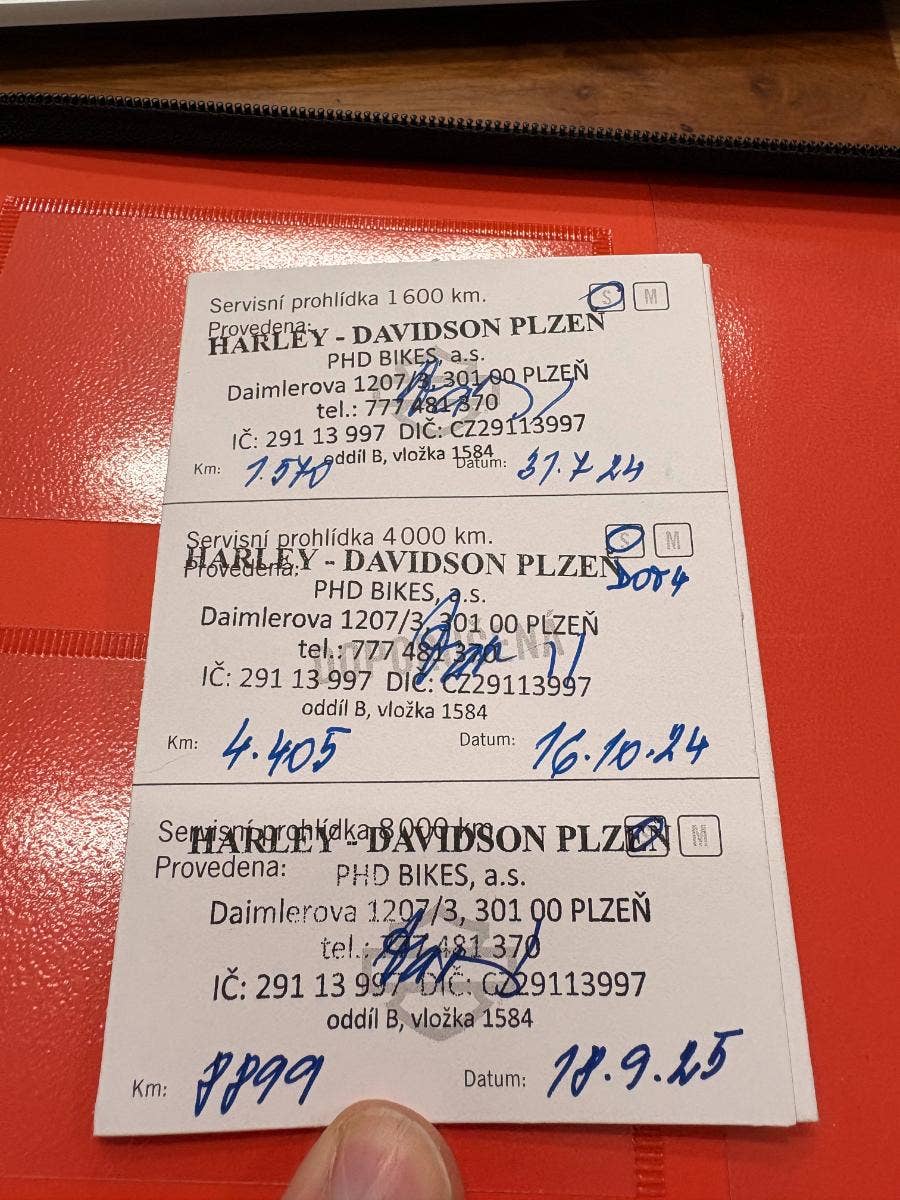 Servisní prohlídka 1 600 km. S M
Provedena:
HARLEY - DAVIDSON PLZEŇ
PHD BIKES, a.s.
Daimlerova 1207/3, 301 00 PLZEŇ
tel.: 777 481 370
IČ: 291 13 997 DIČ: CZ29113997
oddíl B, vložka 1584
Km: 1.570 Datum: 31.7 24
Servisní prohlídka 4 000 km. S M
HARLEY - DAVIDSON PLZEŇ
Provedena: DOT4
PHD BIKES, a.s.
Daimlerova 1207/3, 301 00 PLZEŇ
tel.: 777 481 370
DOPORUČENÁ
IČ: 291 13 997 DIČ: CZ29113997
oddíl B, vložka 1584
Km: 4.405 Datum: 16.10.24
Servisní prohlídka 8 000 km. S M
HARLEY - DAVIDSON PLZEŇ
Provedena:
PHD BIKES, a.s.
Daimlerova 1207/3, 301 00 PLZEŇ
tel.: 777 481 370
IČ: 291 13 997 DIČ: CZ29113997
oddíl B, vložka 1584
Km: 8899 Datum: 18.9.25